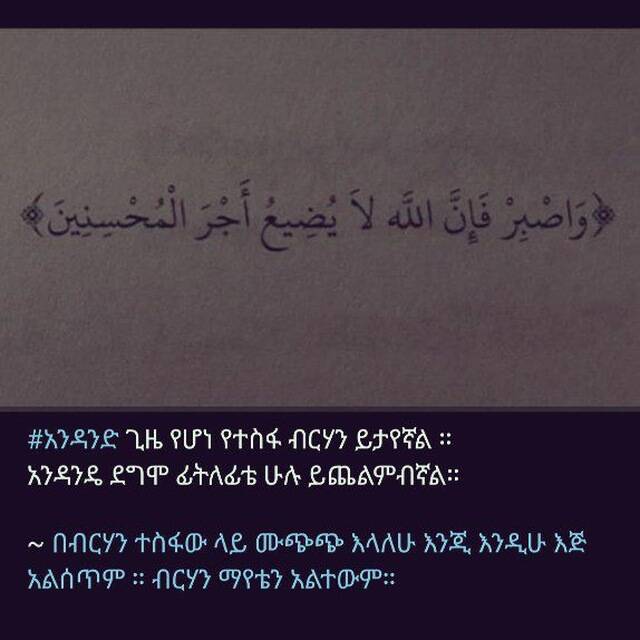 ﴿وَاصْبِرْ فَإِنَّ اللَّه لاَ يُضِيعُ أَجْرَ الْمُحْسِنِينَ﴾
#አንዳንድ ጊዜ የሆነ የተስፋ ብርሃን ይታየኛል ።
አንዳንዴ ደግሞ ፊትለፊቴ ሁሉ ይጨልምብኛል።
~ በብርሃን ተስፋው ላይ ሙጭጭ እላለሁ እንጂ እንዲሁ እጅ
አልሰጥም ። ብርሃን ማየቴን አልተውም።